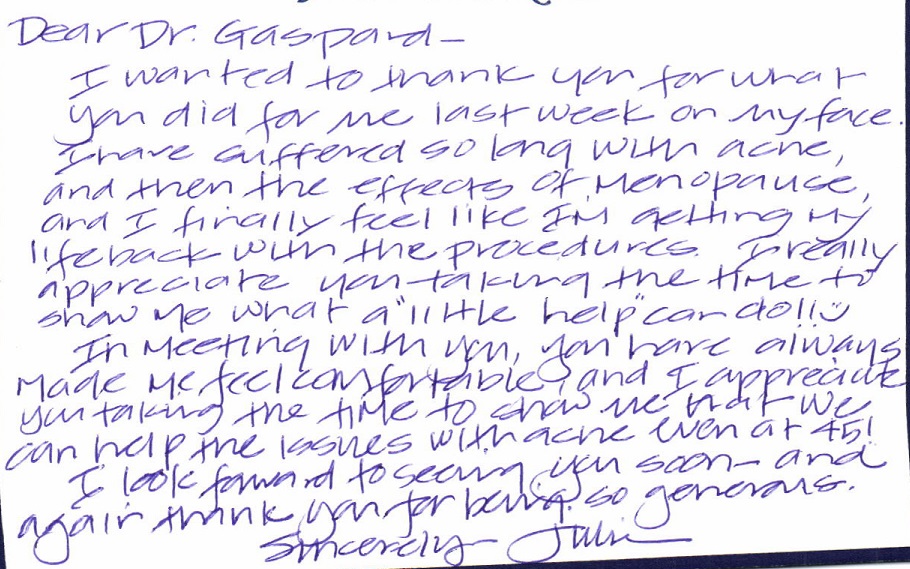 Dear Dr. Gaspard-
I wanted to thank you for what
you did for me last week on my face.
I have suffered so long with acne,
and then the effects of menopause,
and I finally feel like I'm getting my
life back with the procedures. I really
appreciate you taking the time to
show me what a "little help" can do!! :)
In meeting with you, you have always
made me feel comfortable, and I appreciate
you taking the time to show me that we
can help the issues with acne even at 45!
I look forward to seeing you soon- and
again thank you for being so generous.
Sincerely- Julie